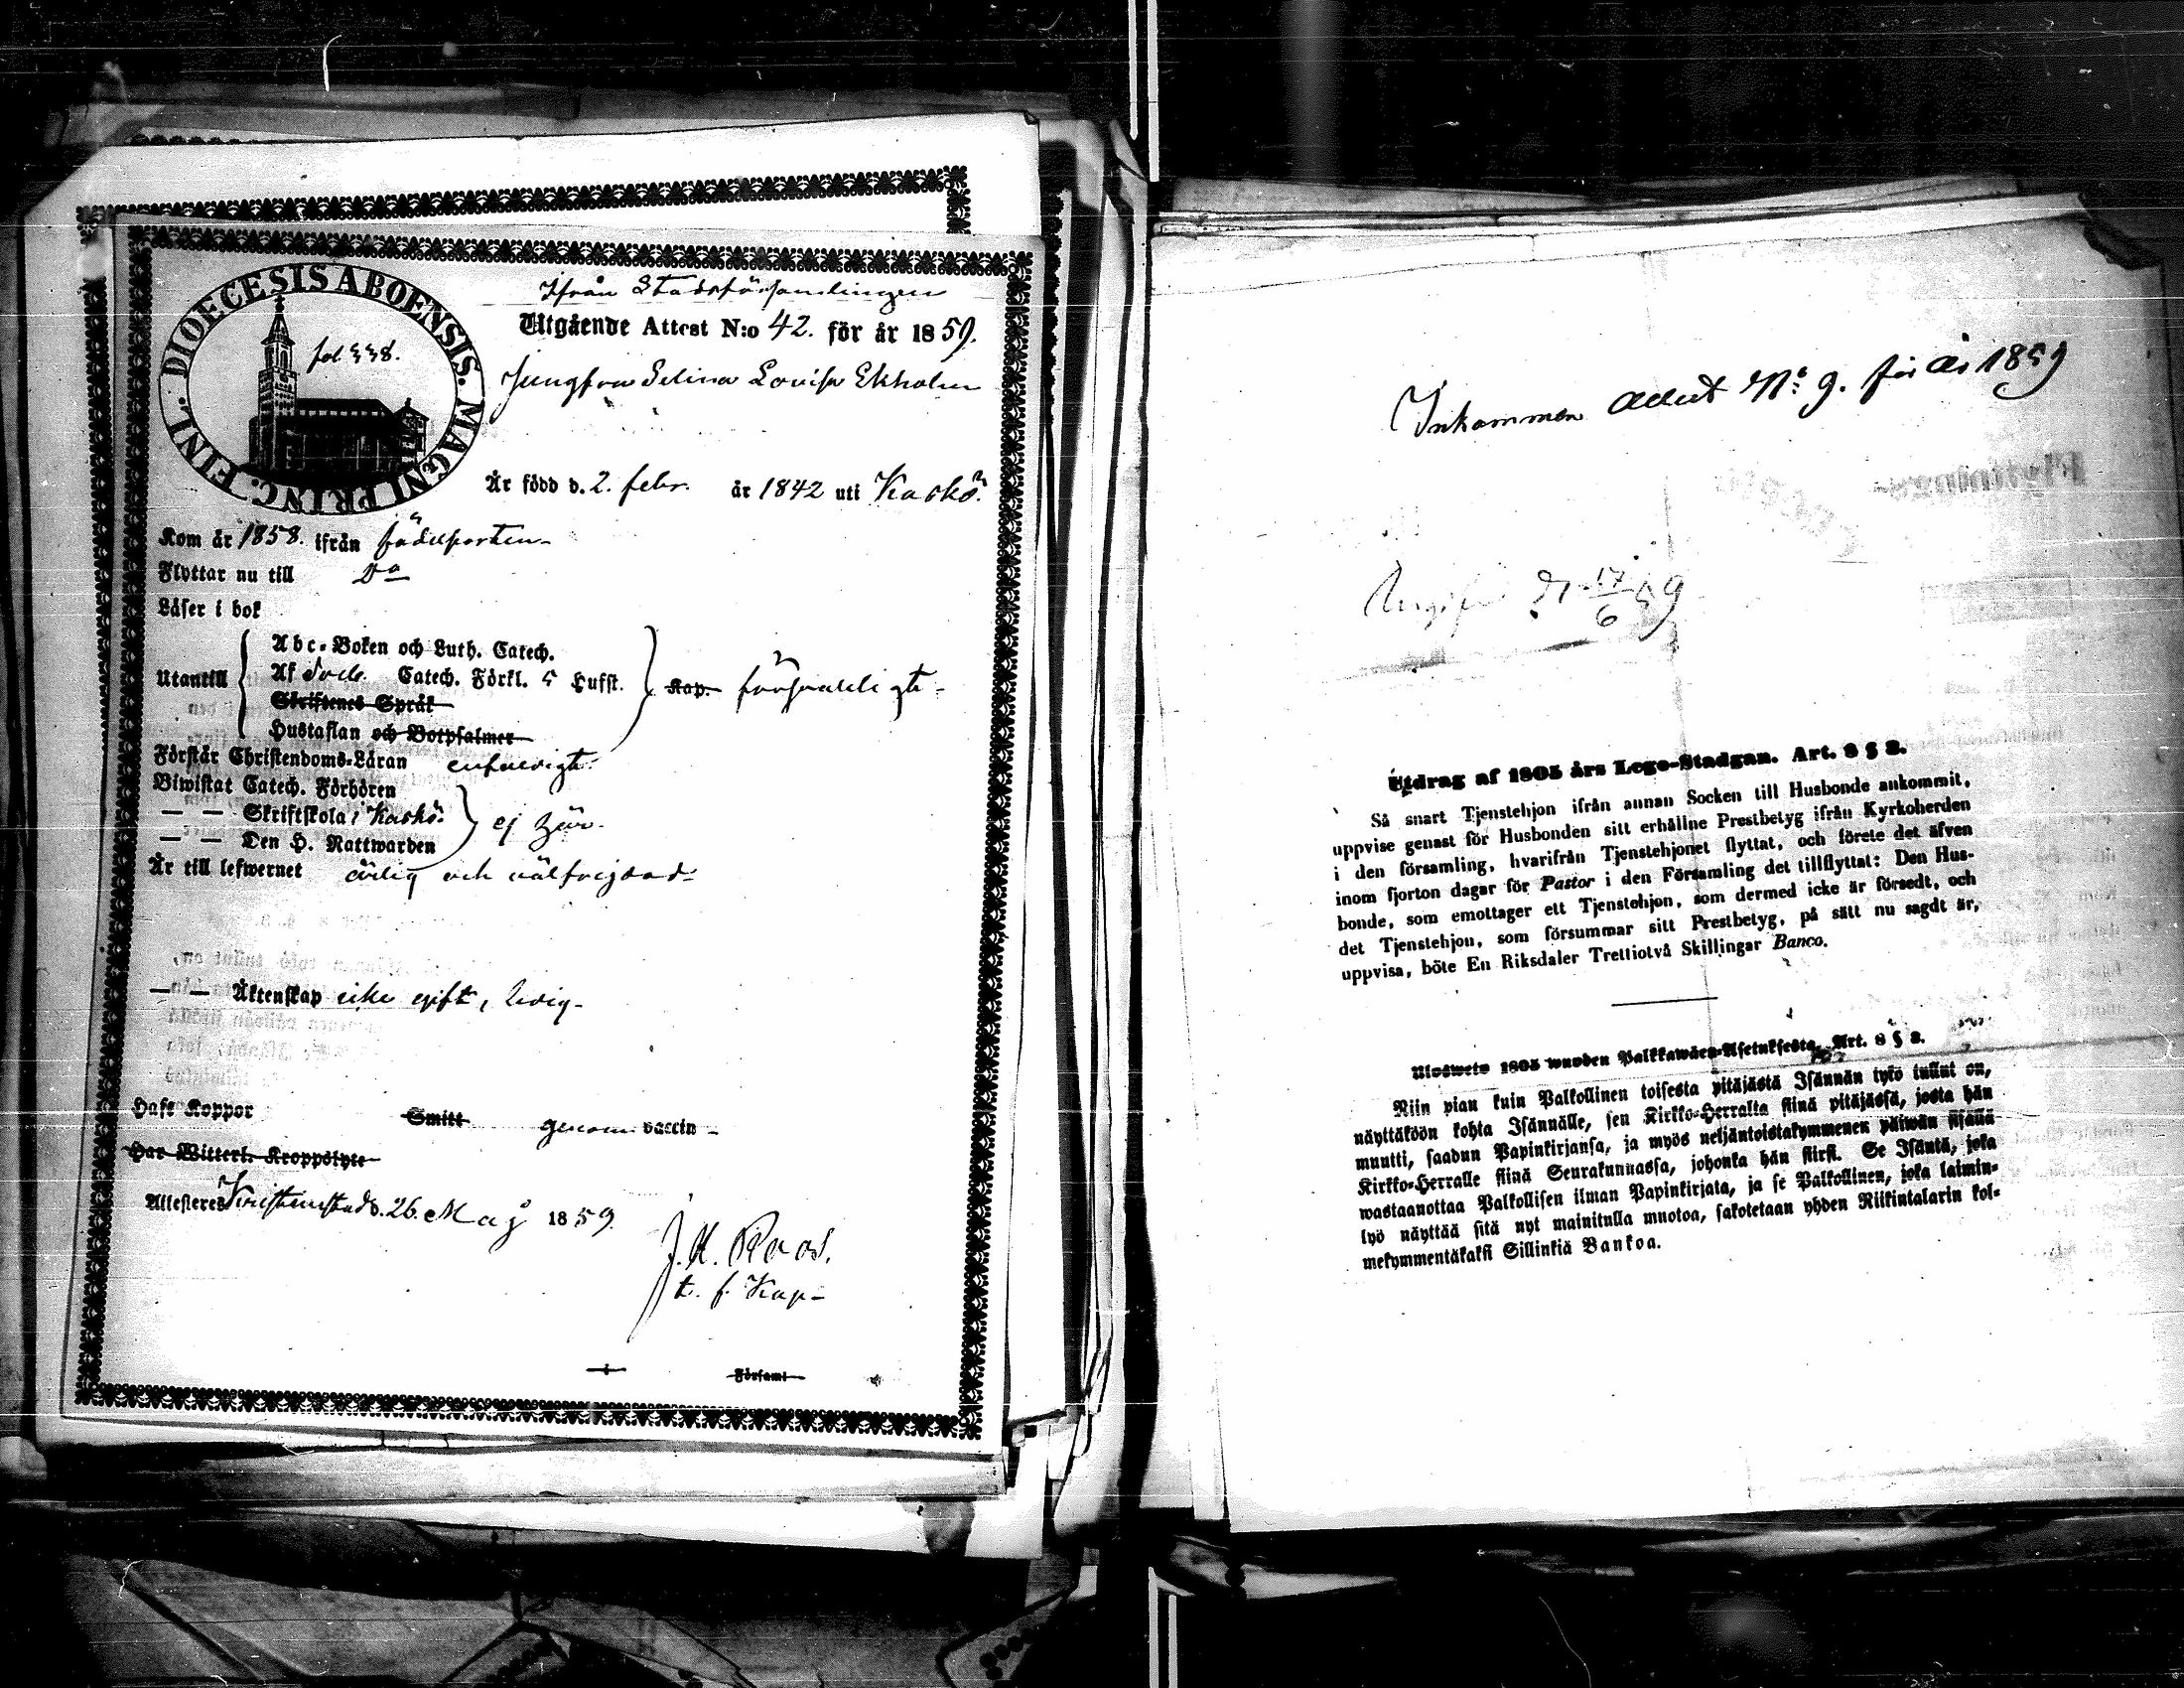 DIOECESIS ABOENSIS. MAGNI PRINC. FINL.
Ifrån Stadsförsamlingen
Utgående Attest N:o 42. för år 1859.
Jungfrun Selina Lovisa Ekholm
Är född d. 2. febr. år 1842 uti Kaskö.
Kom år 1858. ifrån födelseorten
Flyttar nu till Do
Läser i bok
Utantill
Abc-Boken och Luth. Catech.
Af Catech. Förkl. 5 Hufst.
Skriftenes Språk
Hustaflan och Botpsalmer
Kap. försvarligt
Förstår Christendoms-Läran enfaldigt
Biwistat Catech. Förhören
— — Skriftskola i Kaskö.
— — Den H. Nattwarden
ej här.
Är till lefwernet ärlig och välfrejdad
— — Äktenskap icke gift, ledig
Haft Koppor Smitt genom vaccin
Har Witterl. Kroppslyte
Attesteras Kristinestad d. 26. Maj 1859.
J. A. Roos.
t. f. Kap
Församl
Inkommen Attest No 9. för år 1859
17/6 59
Utdrag af 1805 års Lego-Stadgan. Art. 8 § 2.
Så snart Tjenstehjon ifrån annan Socken till Husbonde ankommit,
uppvise genast för Husbonden sitt erhållne Prestbetyg ifrån Kyrkoherden
i den församling, hvarifrån Tjenstehjonet flyttat, och förete det äfven
inom fjorton dagar för Pastor i den Församling det tillflyttat: Den Hus-
bonde, som emottager ett Tjenstehjon, som dermed icke är försedt, och
det Tjenstehjon, som försummar sitt Prestbetyg, på sätt nu sagdt är,
uppvisa, böte En Riksdaler Trettiotvå Skillingar Banco.
Ulosweto 1805 wuoden Palkkawäen-Asetuksesta. Art. 8 § 2.
Niin pian kuin Palkollinen toisesta pitäjästä Isännän tykö tullut on,
näyttäköön kohta Isännälle, sen Kirkko-Herralta siinä pitäjässä, josta hän
muutti, saadun Papinkirjansa, ja myös neljäntoistakymmenen päiwän sisällä
Kirkko-Herralle siinä Seurakunnassa, johonka hän siirsi. Se Isäntä, joka
wastaanottaa Palkollisen ilman Papinkirjata, ja se Palkollinen, joka laimin-
lyö näyttää sitä nyt mainitulla muotoa, sakotetaan yhden Riikintalarin kol-
mekymmentäkaksi Sillinkiä Bankoa.